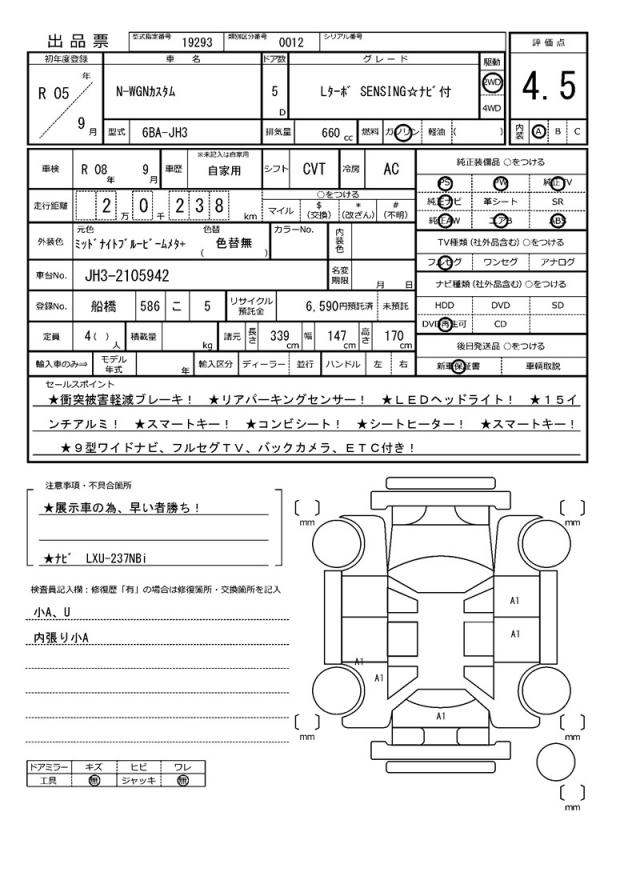 出品票
型式指定番号 19293 類別区分番号 0012 シリアル番号
評価点
初年度登録 車名 ドア数 グレード 駆動
R 05 年 N-WGNカスタム 5 D Lターボ SENSING☆ナビ付 2WD 4.5
4WD
9 月 型式 6BA-JH3 排気量 660 cc 燃料 ガソリン 軽油 ( ) 内装 A B C
車検 R 08 年 9 月 車歴 ※未記入は自家用 自家用 シフト CVT 冷房 AC
走行距離 2 万 0 千 2 3 8 km
○をつける
マイル $(交換) *(改ざん) #(不明)
外装色 元色 ミッドナイトブルービームメタ+ 色替 ( 色替無 ) カラーNo. 内装色
車台No. JH3-2105942 名変期限 月 日
登録No. 船橋 586 こ 5 リサイクル預託金 6,590円預託済 未預託
定員 4( )人 積載量 kg 諸元 長さ 339 cm 幅 147 cm 高さ 170 cm
輸入車のみ⇒ モデル年式 年 輸入区分 ディーラー 並行 ハンドル 左 右
純正装備品 ○をつける
PS PW 純正TV
純正ナビ 革シート SR
純正AW エアB ABS
TV種類(社外品含む) ○をつける
フルセグ ワンセグ アナログ
ナビ種類(社外品含む) ○をつける
HDD DVD SD
DVD再生可 CD
後日発送品 ○をつける
新車保証書 車輌取説
セールスポイント
★衝突被害軽減ブレーキ! ★リアパーキングセンサー! ★LEDヘッドライト! ★15イ
ンチアルミ! ★スマートキー! ★コンビシート! ★シートヒーター! ★スマートキー!
★9型ワイドナビ、フルセグTV、バックカメラ、ETC付き!
注意事項・不具合箇所
★展示車の為、早い者勝ち!
★ナビ LXU-237NBi
検査員記入欄:修復歴「有」の場合は修復箇所・交換箇所を記入
小A、U
内張り小A
ドアミラー キズ ヒビ ワレ
工具 無 ジャッキ 無
mm
mm
A1
A1
A1
A1
A1
mm
mm
mm